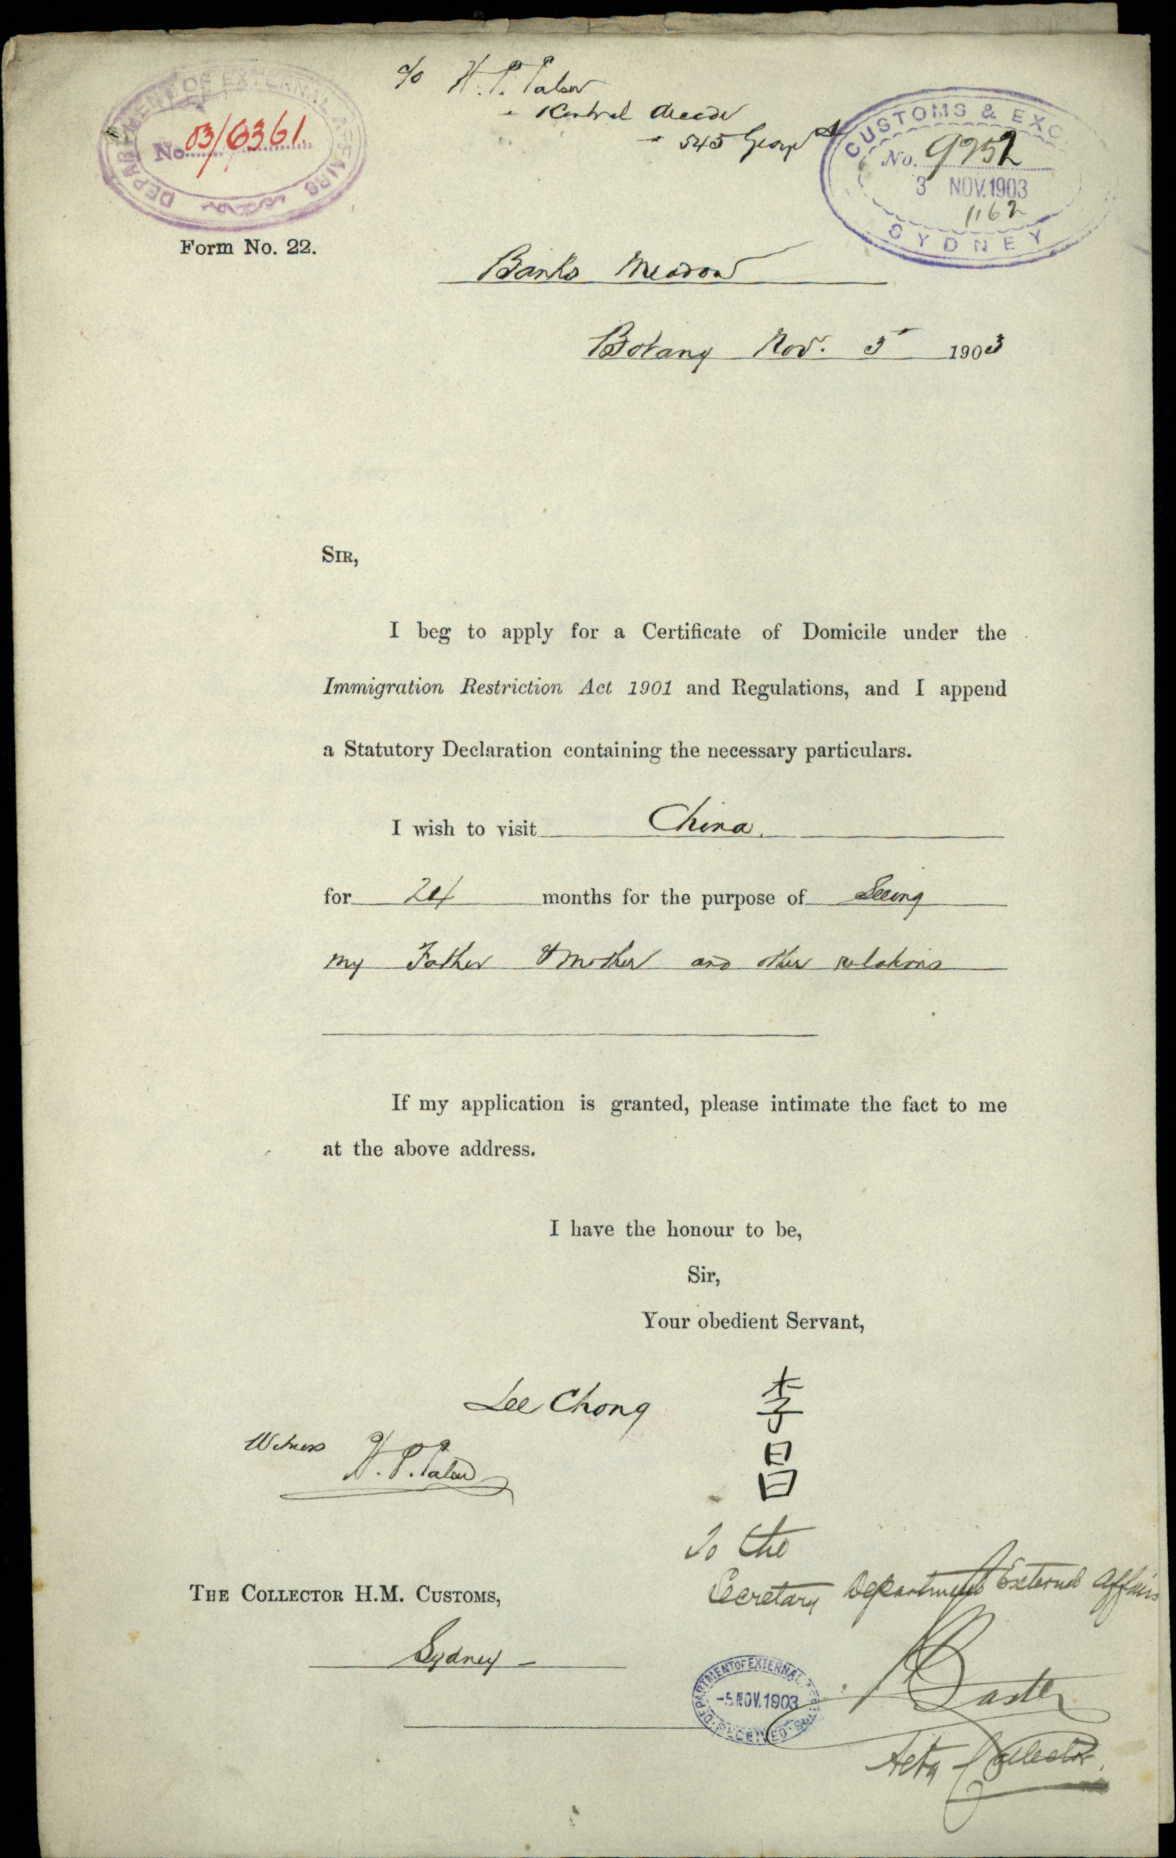 DEPARTMENT OF EXTERNAL AFFAIRS
No. 03/6361.
c/o H. P. Tabor
545 George St
CUSTOMS & EXC
No. 9752
3 NOV. 1903
1162
SYDNEY
Form No. 22.
Banks Meadow
Botany Nov. 3 1903
SIR,
I beg to apply for a Certificate of Domicile under the
Immigration Restriction Act 1901 and Regulations, and I append
a Statutory Declaration containing the necessary particulars.
I wish to visit China.
for 24 months for the purpose of Seeing
my Father & Mother and other relations
If my application is granted, please intimate the fact to me
at the above address.
I have the honour to be,
Sir,
Your obedient Servant,
Lee Chong 李昌
Witness H. P. Tabor
To the
Secretary Department of External Affairs
THE COLLECTOR H.M. CUSTOMS,
Sydney –
DEPARTMENT OF EXTERNAL AFFAIRS
-5 NOV. 1903
RECEIVED
Baxter
Actg Collector.